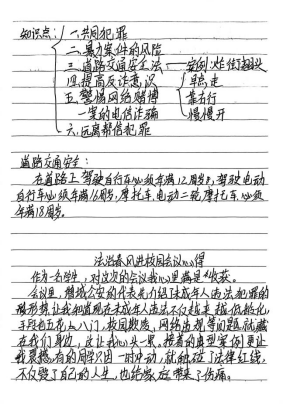 知识点：一.共同犯罪
二.暴力案件的风险
三.道路交通安全法——案例:炸街翘头
四.提高反诈意识 早点走
五.警惕网络赌博 靠右行
一案的电信诈骗 慢慢开
六.远离帮信犯罪
道路交通安全：
在道路上驾驶自行车必须年满12周岁，驾驶电动
自行车必须年满16周岁，摩托车，电动二轮摩托车必须
年满18周岁。
法治春风进校园会议心得
作为一名学生，对这次的会议我心里满是收获。
会议里，公安的代表先介绍了未成年人违法犯罪的
形势，让我知道现在未成年人违法不仅越来越低龄化，
手段也五花八门，校园欺凌，网络违规等问题，就藏
在我们身边，这让我心头一紧。接着的典型案例更让
我震撼，有的同学只因一时冲动，就触碰了法律红线，
不仅毁了自己的人生，也给家庭带来了伤痛。